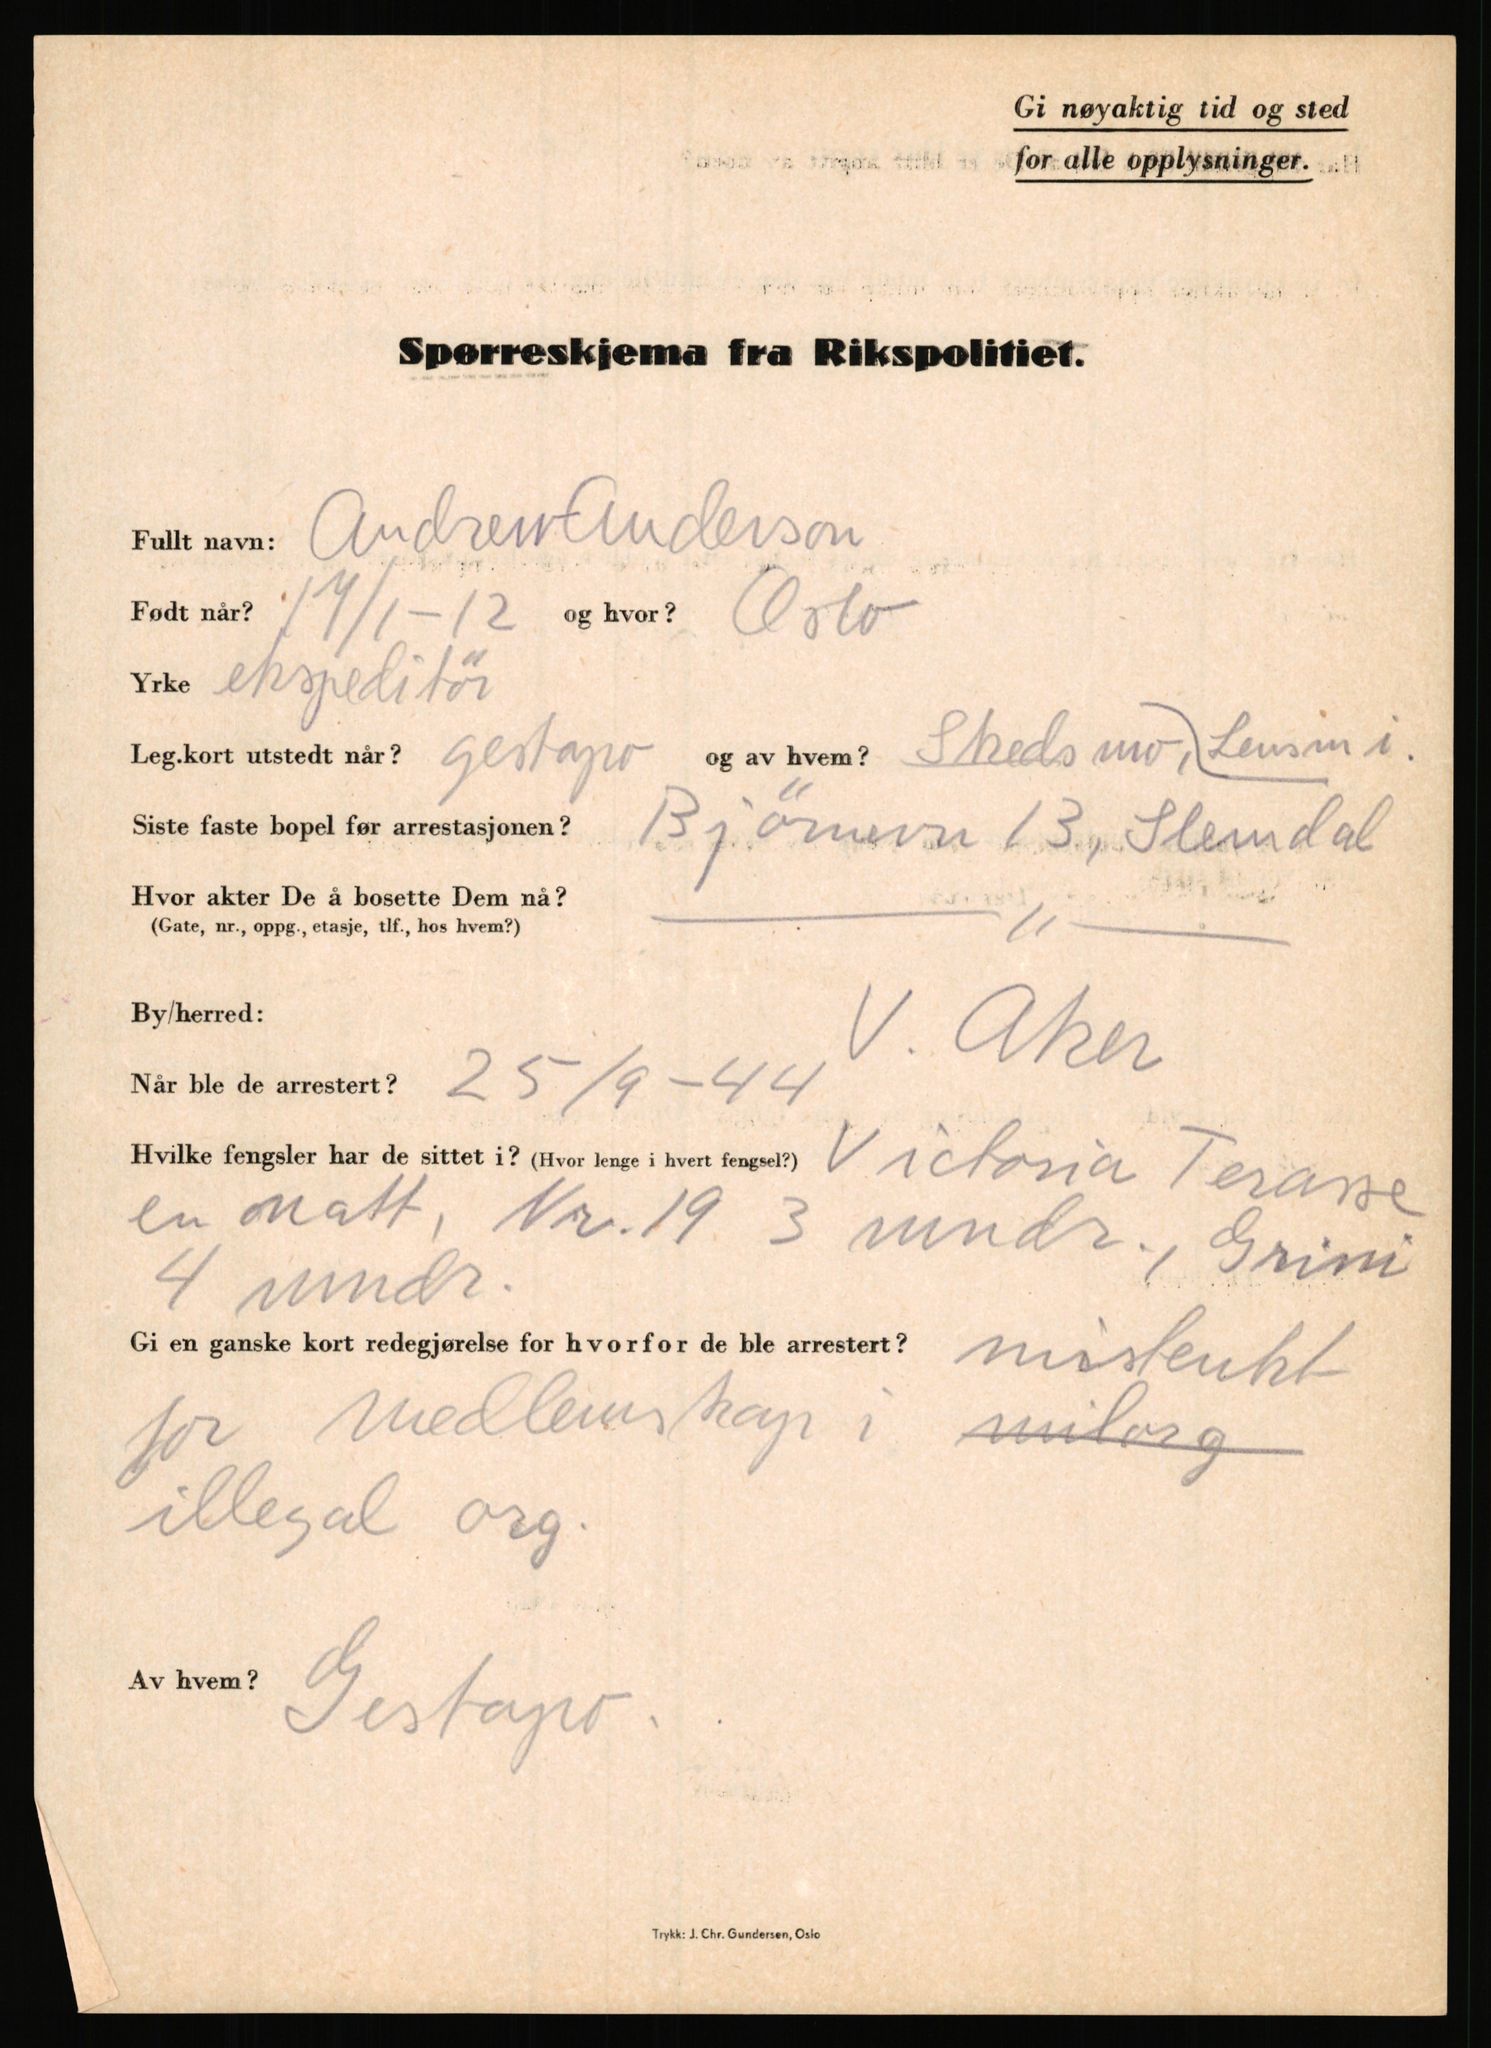 Gi nøyaktig tid og sted
for alle opplysninger.
Spørreskjema fra Rikspolitiet.
Fullt navn: Andrew Anderson
Født når? 17/1-12 og hvor? Oslo
Yrke ekspeditör
Leg.kort utstedt når? gestapo og av hvem? Skedsmo, Lensm i.
Siste faste bopel før arrestasjonen? Björnevn 13, Slemdal
Hvor akter De å bosette Dem nå? — " —
(Gate, nr., oppg., etasje, tlf., hos hvem?)
By/herred: V. Aker
Når ble de arrestert? 25/9-44
Hvilke fengsler har de sittet i? (Hvor lenge i hvert fengsel?) Victoria Terasse
en natt, Nr. 19 3 mndr., Grini
4 mndr.
Gi en ganske kort redegjørelse for hvorfor de ble arrestert? mistenkt
for medlemskap i milorg
illegal org.
Av hvem? Gestapo.
Trykk: J. Chr. Gundersen, Oslo